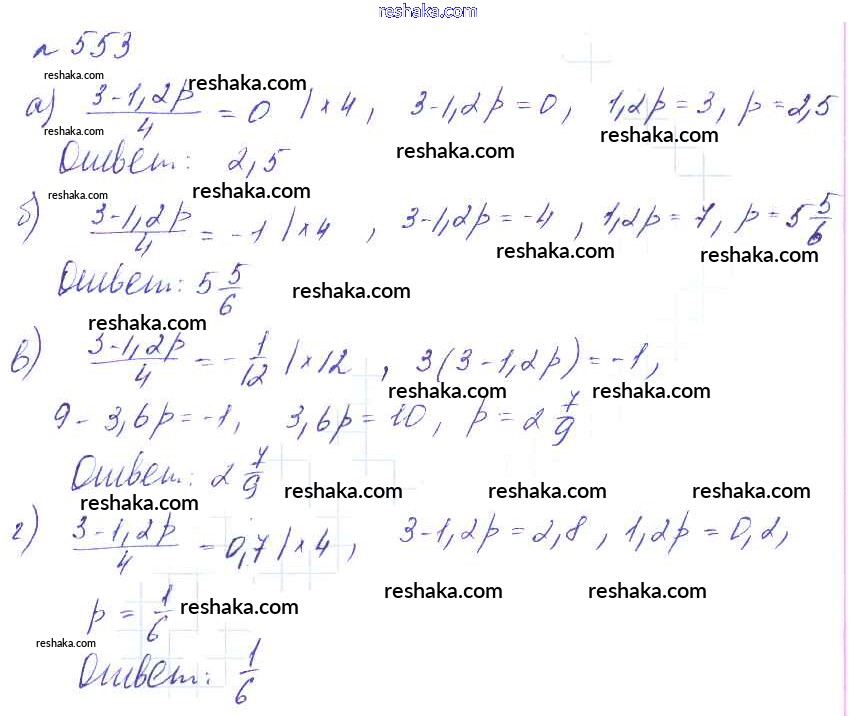 reshaka.com
№ 553
reshaka.com reshaka.com
а) (3-1,2p)/4 = 0 | × 4, 3-1,2p = 0, 1,2p = 3, p = 2,5
reshaka.com reshaka.com reshaka.com
Ответ: 2,5
reshaka.com reshaka.com
б) (3-1,2p)/4 = -1 | × 4, 3-1,2p = -4, 1,2p = 7, p = 5 5/6
reshaka.com reshaka.com
Ответ: 5 5/6 reshaka.com
reshaka.com
в) (3-1,2p)/4 = -1/12 | × 12, 3(3-1,2p) = -1,
reshaka.com reshaka.com
9 - 3,6p = -1, 3,6p = 10, p = 2 7/9
Ответ: 2 7/9
reshaka.com reshaka.com reshaka.com reshaka.com
г) (3-1,2p)/4 = 0,7 | × 4, 3-1,2p = 2,8, 1,2p = 0,2,
reshaka.com reshaka.com
p = 1/6 reshaka.com
reshaka.com
Ответ: 1/6